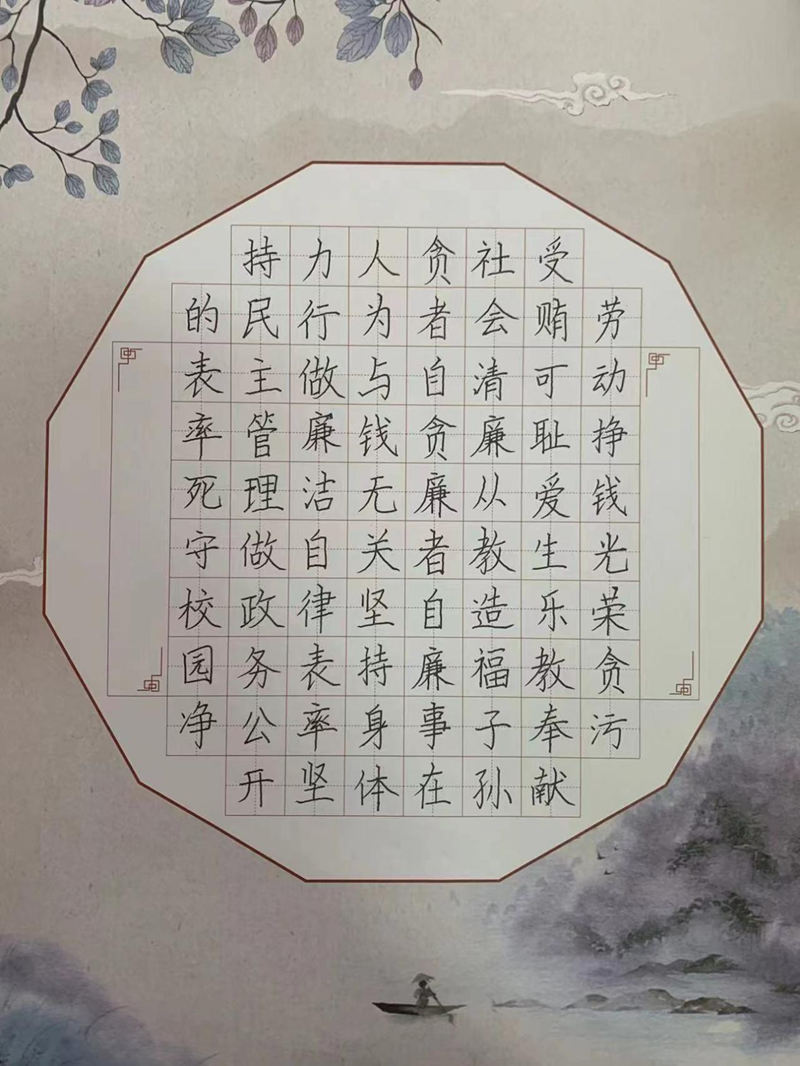 劳动挣钱光荣贪污
受贿可耻爱生乐教奉献
社会清廉从教造福子孙
贪者自贪廉者自廉事在
人为与钱无关坚持身体
力行做廉洁自律表率坚
持民主管理做政务公开
的表率死守校园净